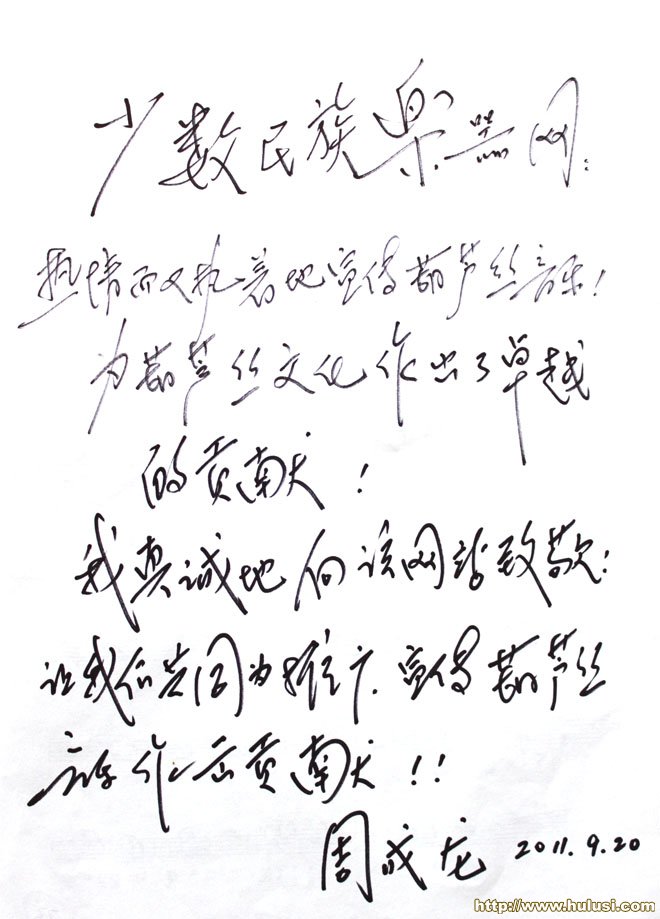 少数民族乐器网:
热情而又执着地宣传葫芦丝音乐!
为葫芦丝文化作出了卓越
的贡献!
我真诚地向该网站致敬:
让我们共同为推广、宣传葫芦丝
音乐作出贡献!!
周成龙 2011.9.20
http://www.hulusi.com